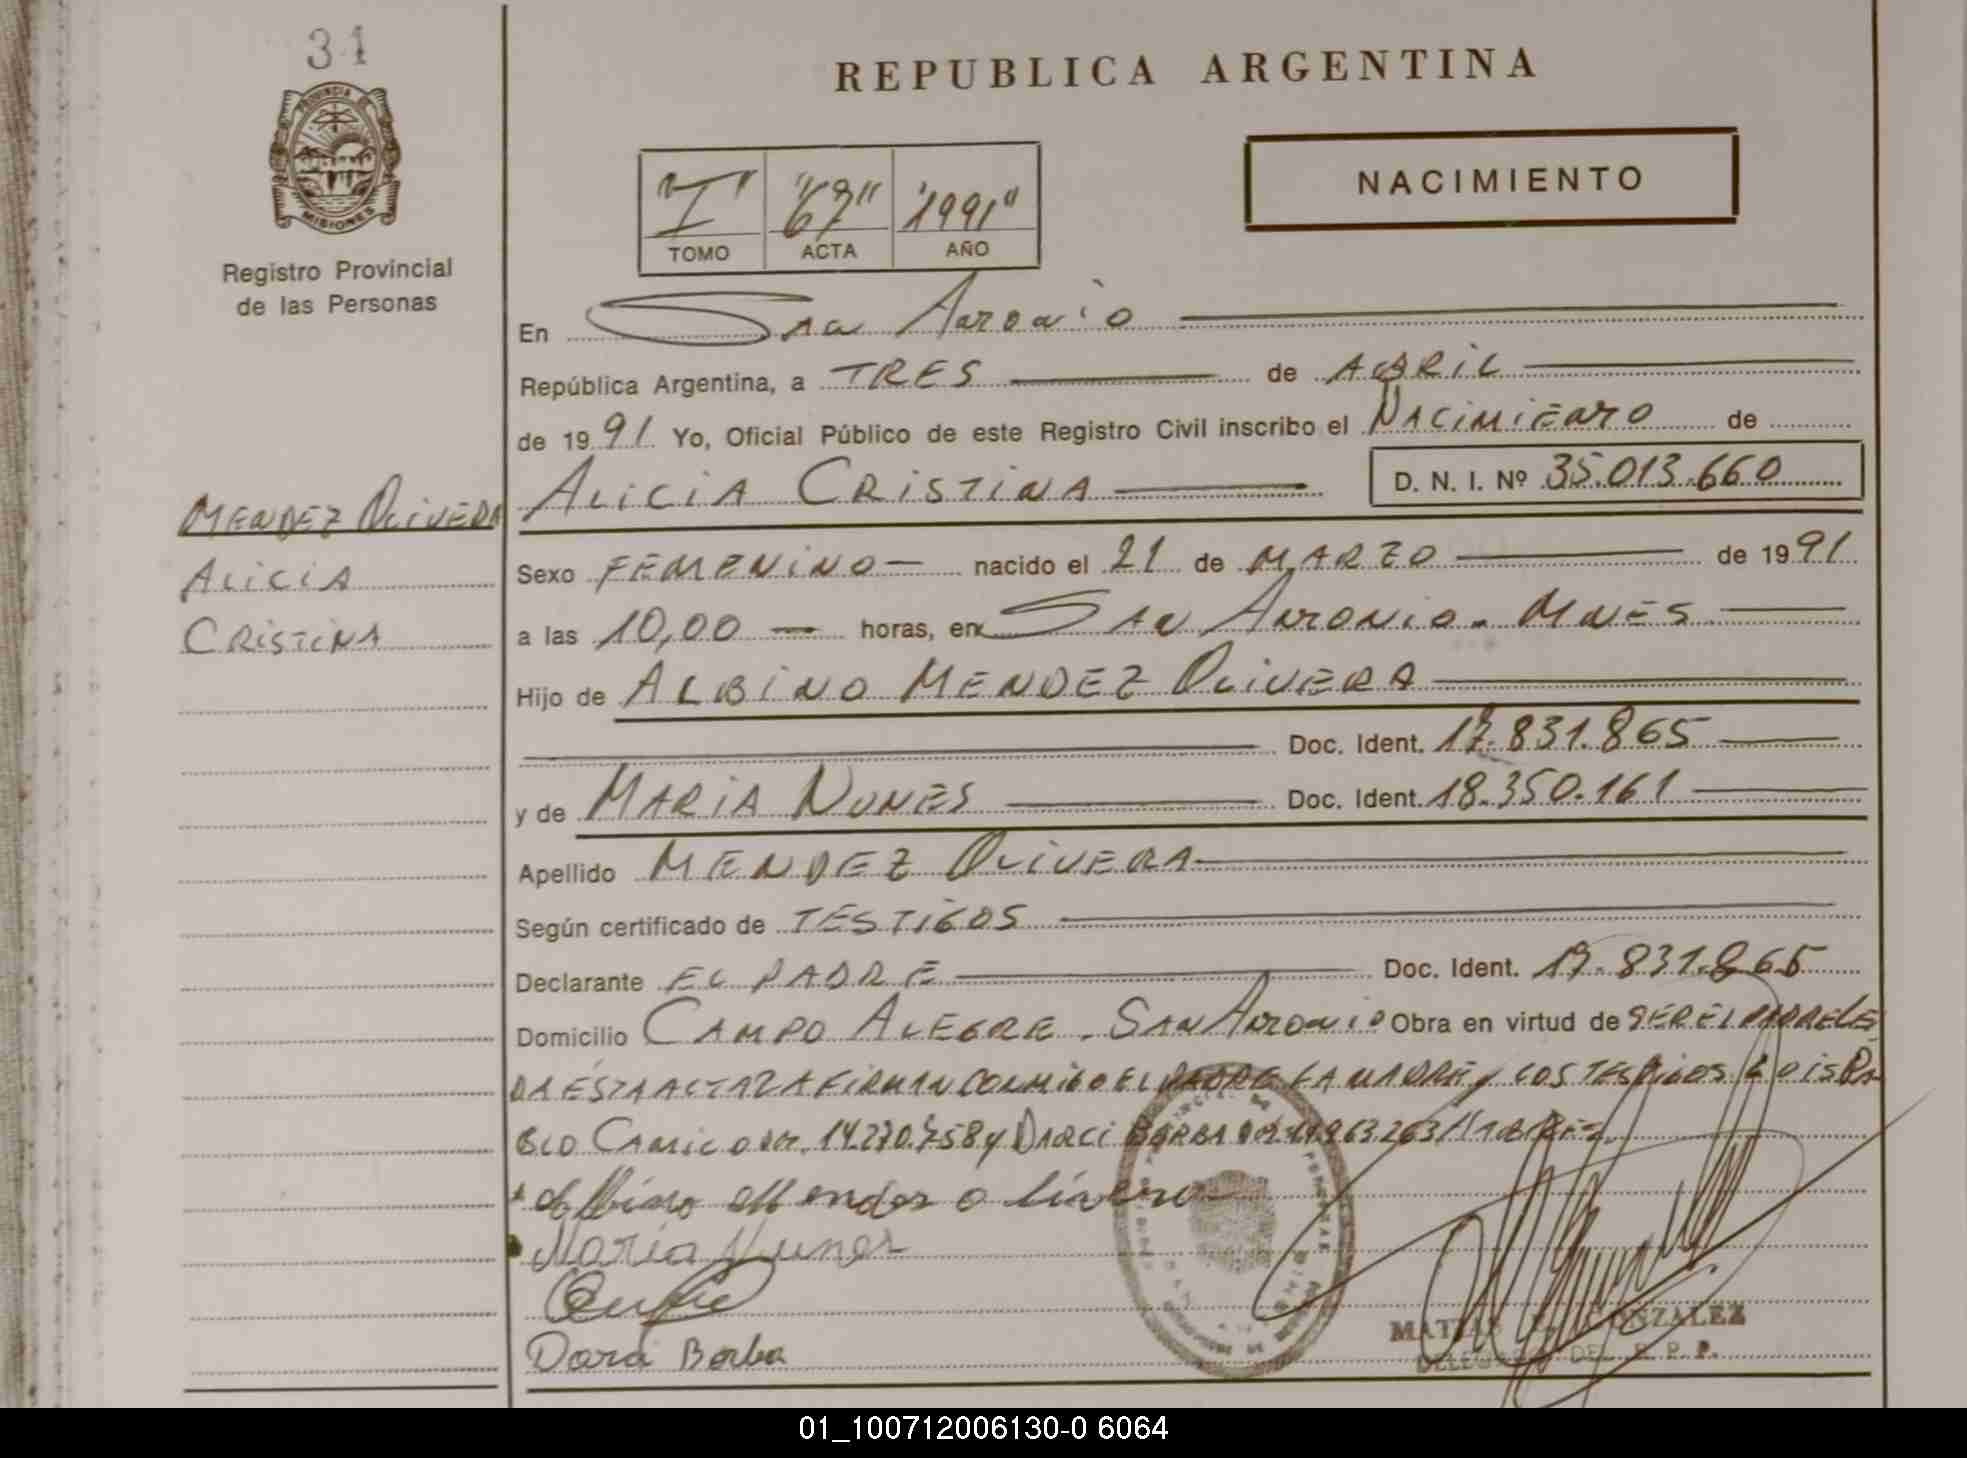 31
PROVINCIA DE
MISIONES
Registro Provincial
de las Personas
REPUBLICA ARGENTINA
"I" "67" "1991"
TOMO ACTA AÑO
NACIMIENTO
En San Antonio
República Argentina, a TRES de ABRIL
de 1991 Yo, Oficial Público de este Registro Civil inscribo el NACIMIENTO de
MENDEZ OLIVERA
ALICIA
CRISTINA
ALICIA CRISTINA D. N. I. Nº 35.013.660
Sexo FEMENINO - nacido el 21 de MARZO de 1991
a las 10,00 horas, en SAN ANTONIO - MNES
Hijo de ALBINO MENDEZ OLIVERA
Doc. Ident. 17.831.865
y de MARIA NUNES Doc. Ident. 18.350.161
Apellido MENDEZ OLIVERA
Según certificado de TESTIGOS
Declarante EL PADRE Doc. Ident. 17.831.865
Domicilio CAMPO ALEGRE - SAN ANTONIO Obra en virtud de SER EL PADRE LEI
DA ÉSTA ACTA LA FIRMAN CONMIGO EL PADRE LA MADRE y LOS TESTIGOS
BLO 14.270.758 y DARCI BORBA
Albino Mendes olivera
Maria Nunes
Darci Borba
MATIAS GONZALEZ
DELEGADO DEL R. P. P.
01_100712006130-0 6064